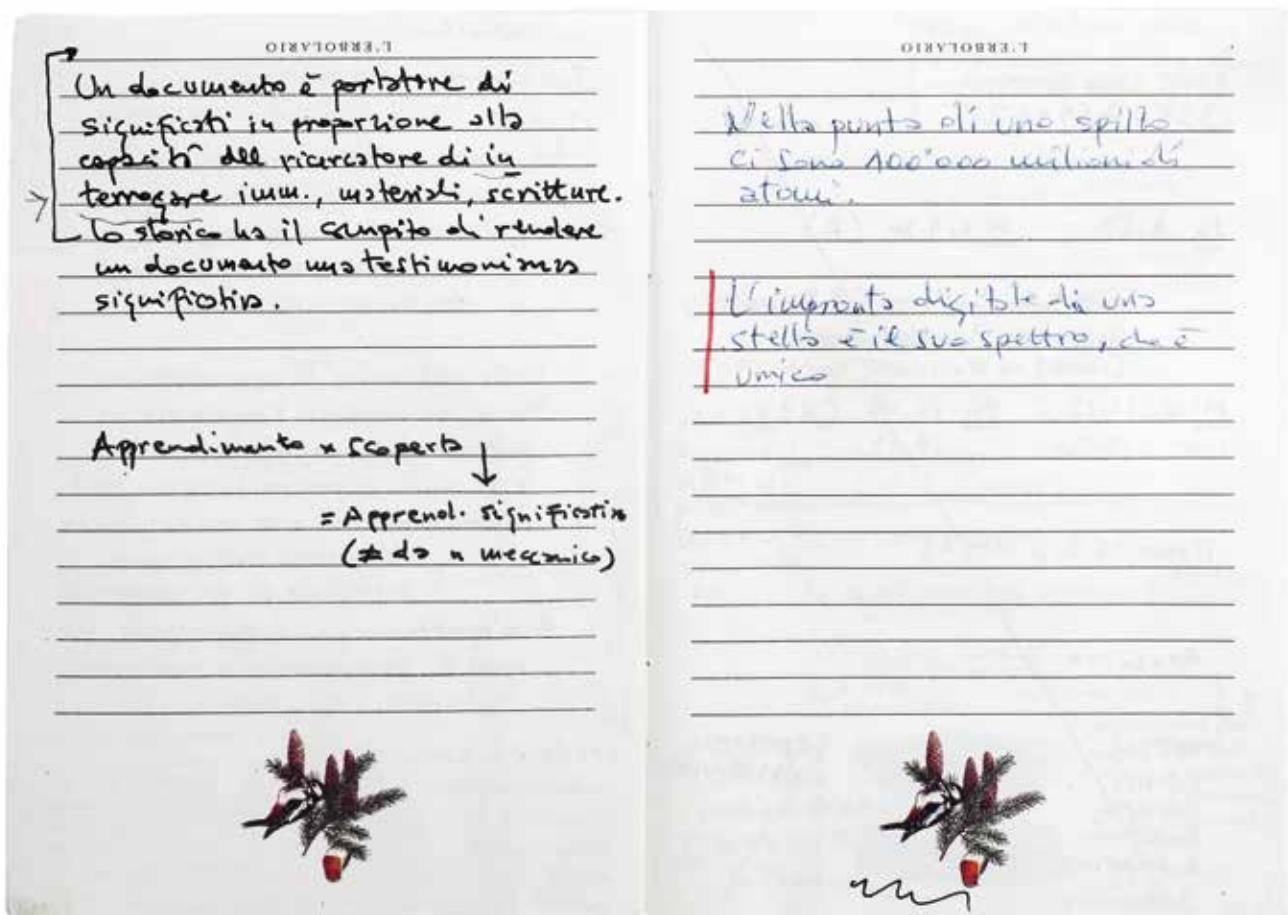 L'ERBOLARIO
Un documento è portatore di
significati in proporzione alla
capacità del ricercatore di in
terrogare imm., materiali, scritture.
Lo storico ha il compito di rendere
un documento una testimonianza
significativa.
Apprendimento x scoperta
= Apprend. significativo
(≠ da n meccanico)
L'ERBOLARIO
Nella punta di uno spillo
ci sono 100'000 milioni di
atomi.
L'impronta digitale di una
stella è il suo spettro, che è
unico